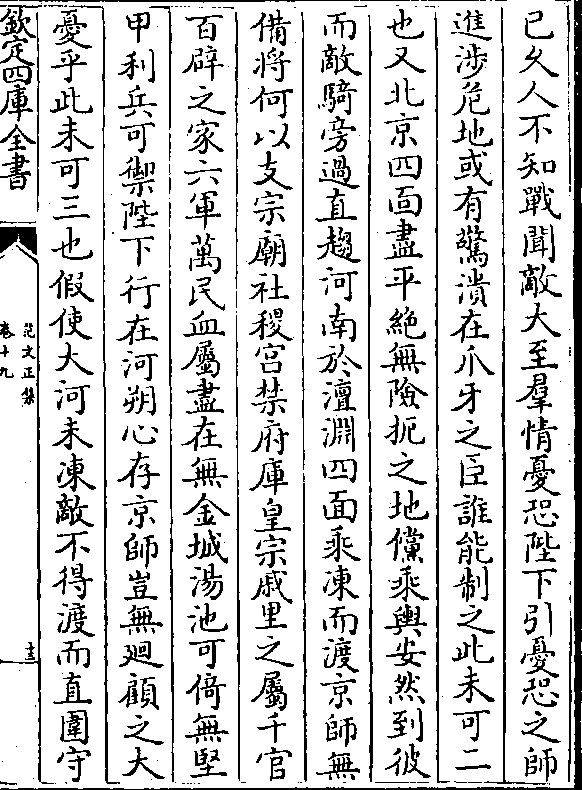 已久人不知戰聞敵大至羣情憂恐陛下引憂恐之師
進涉危地或有驚潰在爪牙之臣誰能制之此未可二
也又北京四面盡平絶無險扼之地儻乘輿安然到彼
而敵騎旁過直趨河南於澶淵四面乘凍而渡京師無
備將何以支宗廟社稷宮禁府庫皇宗戚里之屬千官
百辟之家六軍萬民血屬盡在無金城湯池可倚無堅
甲利兵可禦陛下行在河朔心存京師豈無廻顧之大
憂乎此未可三也假使大河未凍敵不得渡而直圍守
欽定四庫全書
范文正集
卷十九
十三